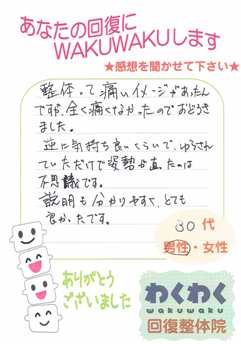 あなたの回復に
WAKUWAKUします
★感想を聞かせて下さい★
整体って痛いイメージがあったん
ですが、全く痛くなかったのでおどろき
ました。
逆に気持ち良いくらいで、ゆらされ
ていただけで姿勢が直ったのは
不思議です。
説明も分かりやすく、とても
良かったです。
30代
男性・女性
ありがとう
ございました
わくわく
wakuwaku
回復整体院